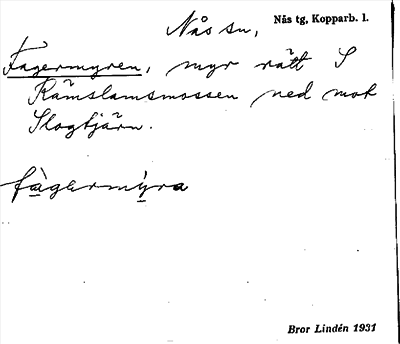 Nås sn, Nås tg, Kopparb. l.
Fagermyren, myr rätt S
Rämslamsmossen ned mot
Slogtjärn.
fàgermýra
Bror Lindén 1931